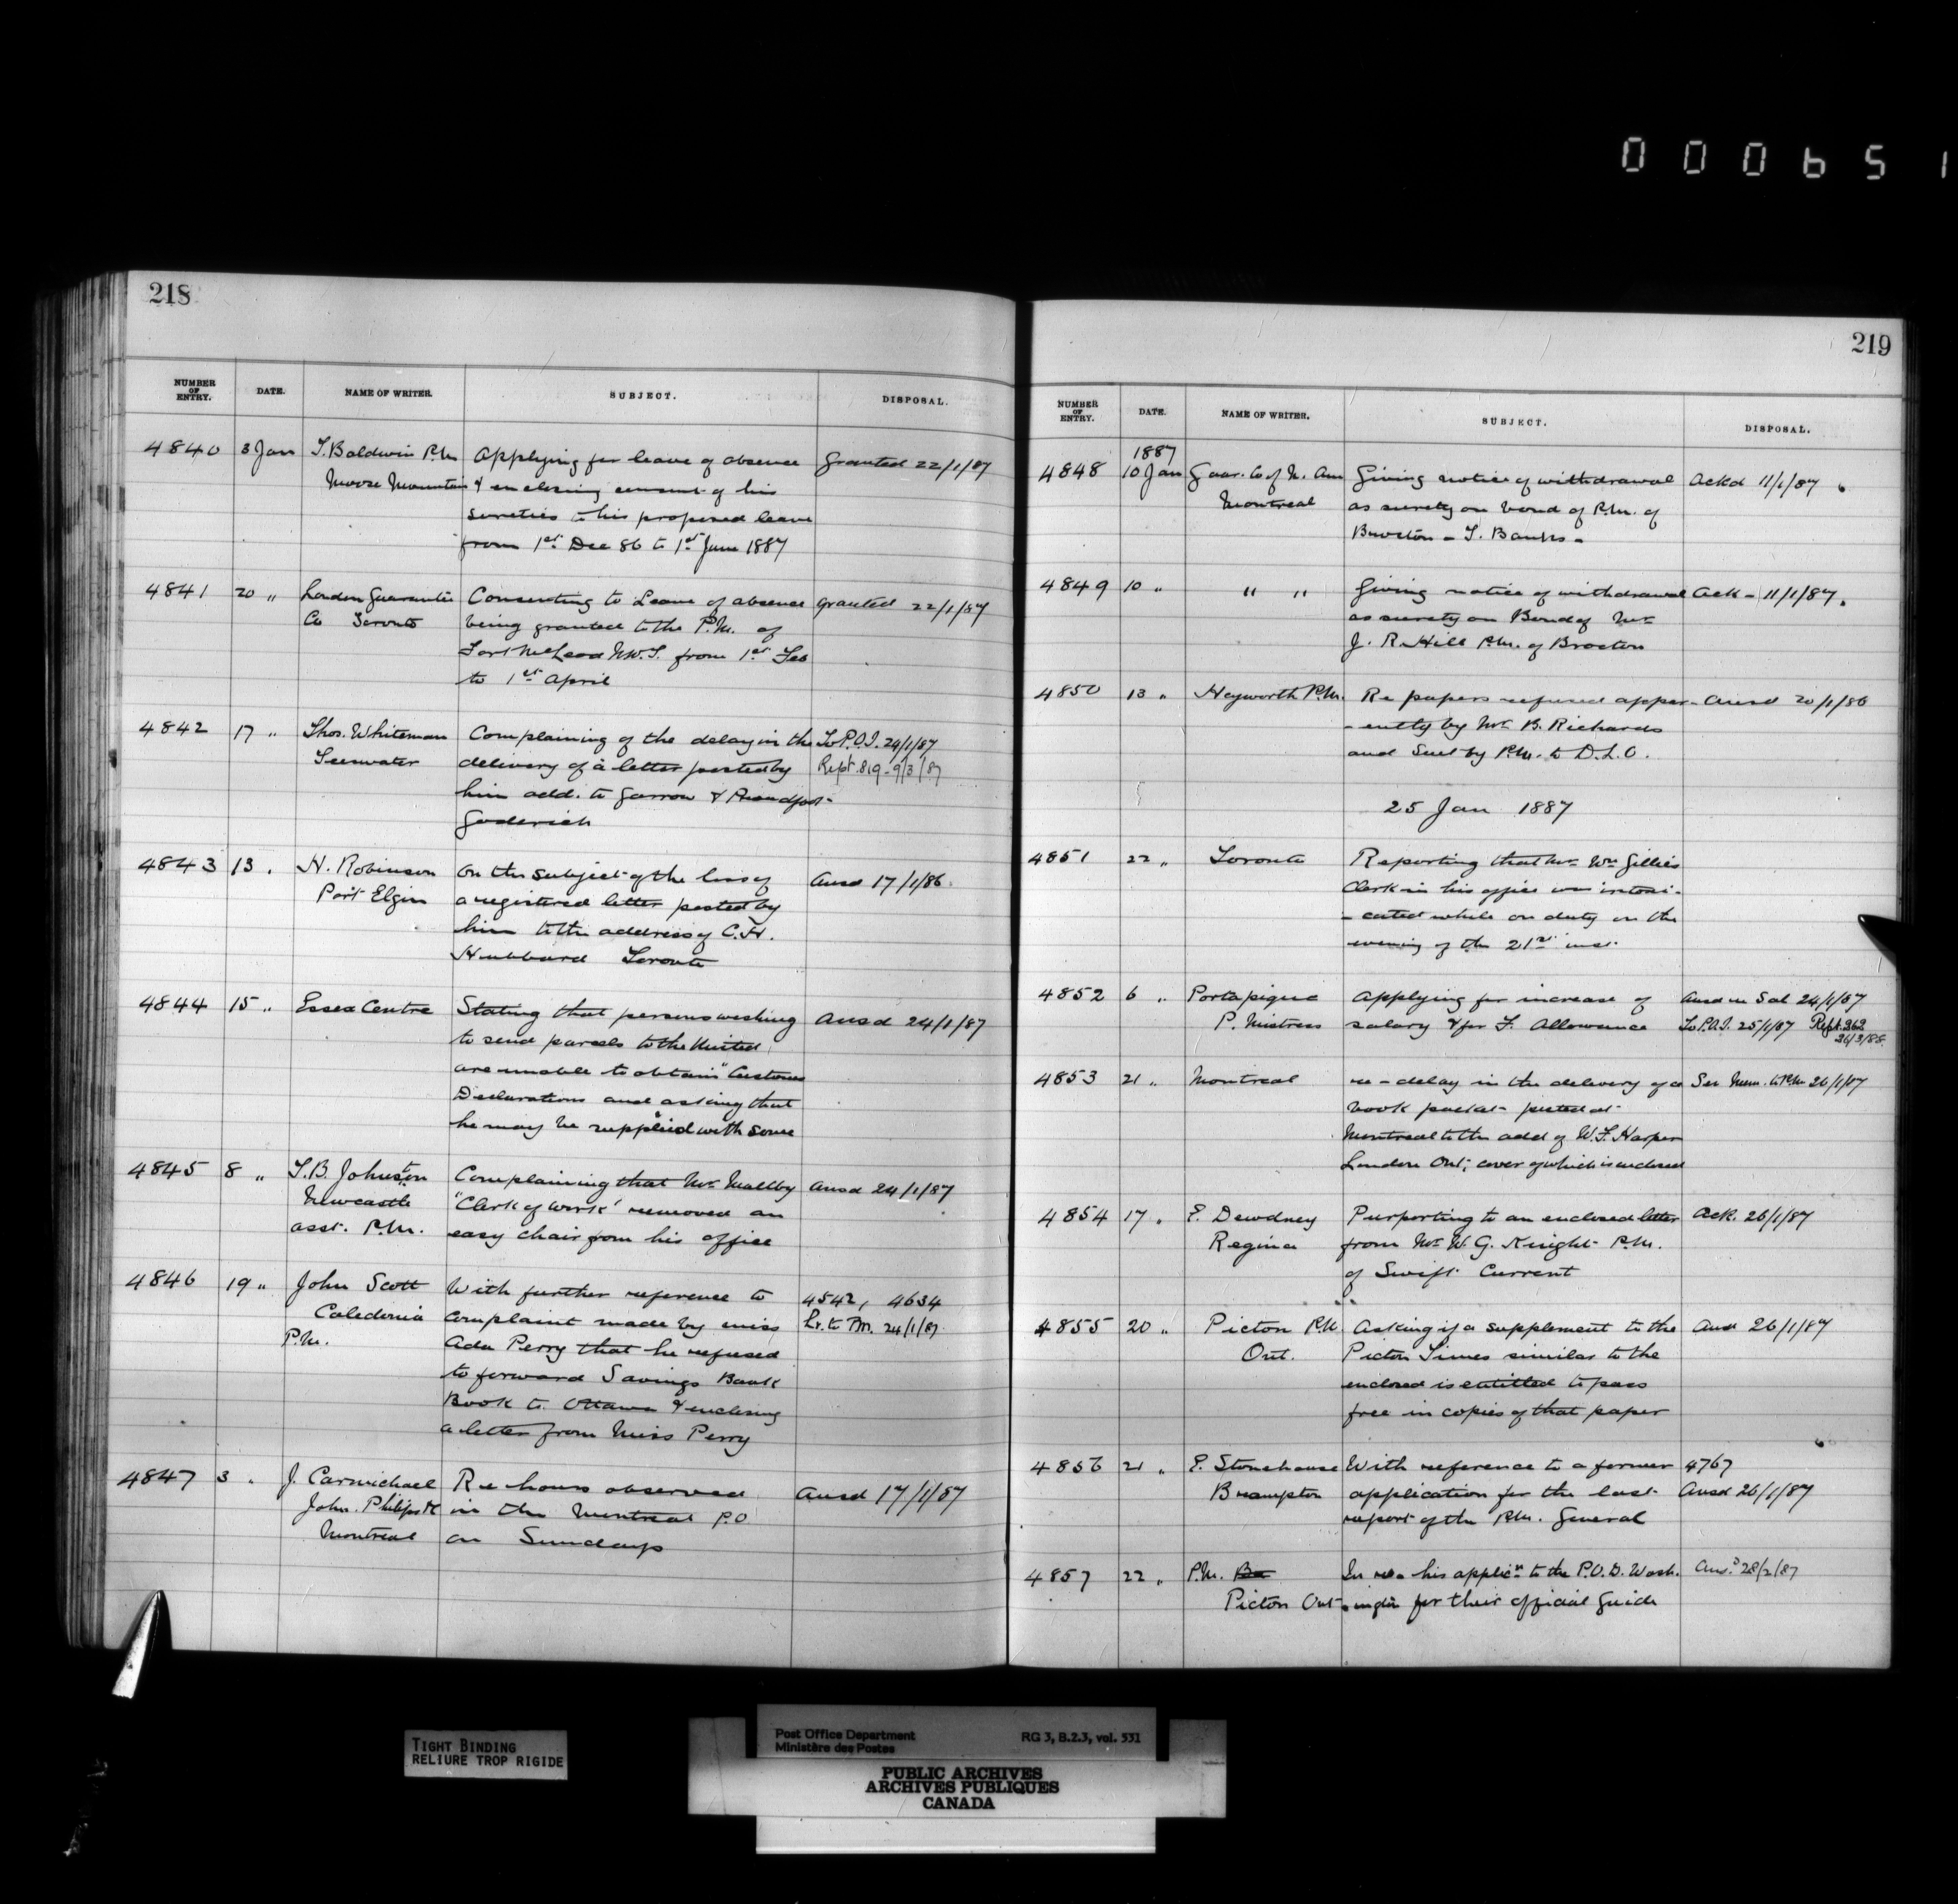 000651
218
NUMBER OF ENTRY. DATE. NAME OF WRITER. SUBJECT. DISPOSAL.
4840 3 Jan T. Baldwin P.M. Applying for leave of absence Granted 22/1/87
Moose Mountain & enclosing consent of his
sureties to his proposed leave
from 1st Dec 86 to 1st June 1887
4841 20 " London Guarantee Consenting to Leave of absence Granted 22/1/87
Co Toronto being granted to the P.M. of
Fort McLeod N.W.T. from 1st Feb
to 1st April
4842 17 " Thos. Whiteman Complaining of the delay in the To P.O.I. 24/1/87
Teeswater delivery of a letter posted by Rept. 819 - 9/3/87
him add. to Garrow & Proudfoot
Goderich
4843 13 " H. Robinson On the subject of the loss of Ansd 17/1/86
Port Elgin a registered letter posted by
him to the address of C. H.
Hubbard Toronto
4844 15 " Essex Centre Stating that persons wishing Ansd 24/1/87
to send parcels to the United
are unable to obtain "Customs
Declarations and asking that
he may be supplied with some
4845 8 " T.B. Johnston Complaining that Mr Maltby Ansd 24/1/87
Newcastle "Clerk of Work' removed an
asst. P.M. easy chair from his office
4846 19 " John Scott With further reference to 4542, 4634
Caledonia complaint made by miss Lr. to P.M. 24/1/87
P.M. Ada Perry that he refused
to forward Savings Bank
Book to Ottawa & enclosing
a letter from Miss Perry
4847 3 " J. Carmichael Re hours observed Ansd 17/1/87
John Philips in the Montreal P.O
Montreal on Sundays
219
NUMBER OF ENTRY. DATE. NAME OF WRITER. SUBJECT. DISPOSAL.
1887
4848 10 Jan Guar. Co of N. Am Giving notice of withdrawal Ackd 11/1/87
Montreal as surety on bond of P.M. of
T. Banks -
4849 10 " " " Giving notice of withdrawal Ack - 11/1/87.
as surety on Bond of Mr
J. R. Hill P.M. of Brocton
4850 13 " Heyworth P.M. Re papers refused appar- Ansd 20/1/86
- ently by Mr B. Richards
and sent by P.M. to D.L.O.
25 Jan 1887
4851 22 " Toronto Reporting that Mr Wm Gillies
Clerk in his office was intoxi-
- cated while on duty on the
evening of the 21st inst.
4852 6 " Portapique Applying for increase of Ansd in Sal 24/1/87
P. Mistress salary & for F. Allowance To P.O.I. 25/1/87 Rept. 262
26/3/88
4853 21 " Montreal re - delay in the delivery of a See Mem. to P.M. 26/1/87
book packet posted at
Montreal to the add of W.F. Harper
London Ont; cover of which is enclosed
4854 17 " E. Dewdney Purporting to an enclosed letter Ack. 26/1/87
Regina from Mr W. G. Knight P.M.
of Swift Current
4855 20 " Picton P.M. Asking if a supplement to the Ansd 26/1/87
Ont. Picton Times similar to the
enclosed is entitled to pass
free in copies of that paper
4856 21 " E. Stonehouse With reference to a former 4767
Brampton application for the last Ansd 26/1/87
report of the P.M. General
4857 22 " P.M. In re his applicn to the P.O.D. Wash. Ansd 28/2/87
Picton Ont - ington for their official Guide
TIGHT BINDING
RELIURE TROP RIGIDE
Post Office Department RG 3, B.2.3, vol. 531
Ministère des Postes
PUBLIC ARCHIVES
ARCHIVES PUBLIQUES
CANADA